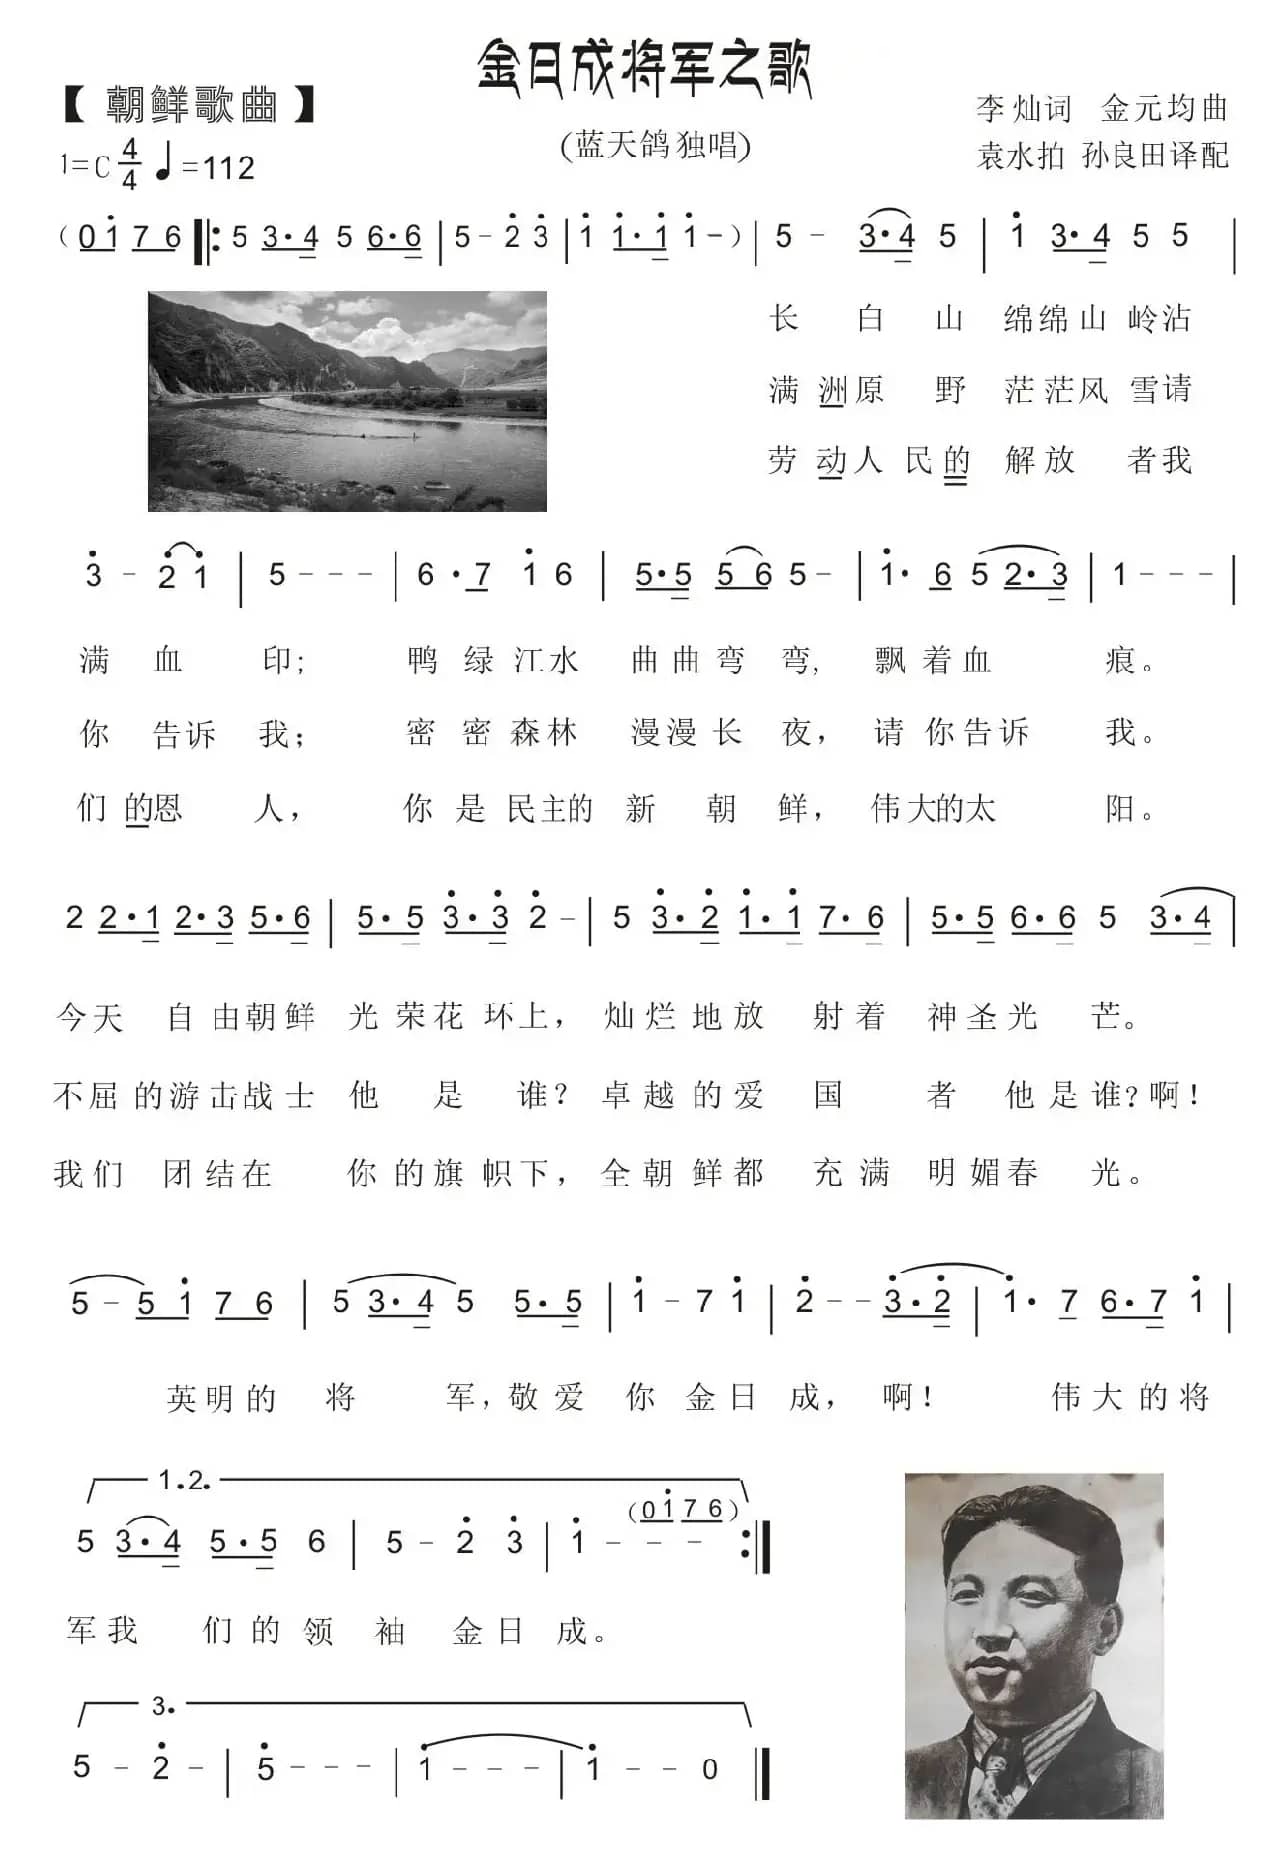 金日成将军之歌
【 朝鲜歌曲 】
李灿词 金元均曲
(蓝天鸽独唱)
袁水拍 孙良田译配
1=C 4/4 ♩=112
(0i 76 ‖: 5 3·4 5 6·6 | 5 - 2̇ 3̇ | i i·i i - ) | 5 - 3·4 5 | i 3·4 5 5 |
长 白 山 绵绵山 岭沾
满 洲原 野 茫茫风 雪请
劳 动人 民的 解放 者我
3̇ - 2̇ i | 5 - - - | 6·7 i 6 | 5·5 5 6 5 - | i· 6 5 2·3 | 1 - - - |
满 血 印; 鸭 绿 江水 曲曲弯 弯, 飘着血 痕。
你 告诉 我; 密 密 森林 漫漫长 夜, 请你告诉 我。
们 的恩 人, 你 是 民主的 新 朝 鲜, 伟大的太 阳。
2 2·1 2·3 5·6 | 5·5 3̇·3̇ 2̇ - | 5 3̇·2̇ i·i 7·6 | 5·5 6·6 5 3·4 |
今天 自由朝鲜 光荣花 环上, 灿烂地放 射着 神圣光 芒。
不屈的游击战士 他 是 谁? 卓越的爱 国 者 他是谁?啊!
我们 团结在 你的旗 帜下, 全朝鲜都 充满 明媚春 光。
5 - 5 i 7 6 | 5 3·4 5 5·5 | i - 7 i | 2̇ - - 3̇·2̇ | i· 7 6·7 i |
英明的 将 军,敬爱 你 金日 成, 啊! 伟大的将
1.2.
5 3·4 5·5 6 | 5 - 2̇ 3̇ | i - - - (0i 76) :‖
军我 们的领 袖 金日 成。
3.
5 - 2̇ - | 5̇ - - - | i - - - | i - - 0 ‖